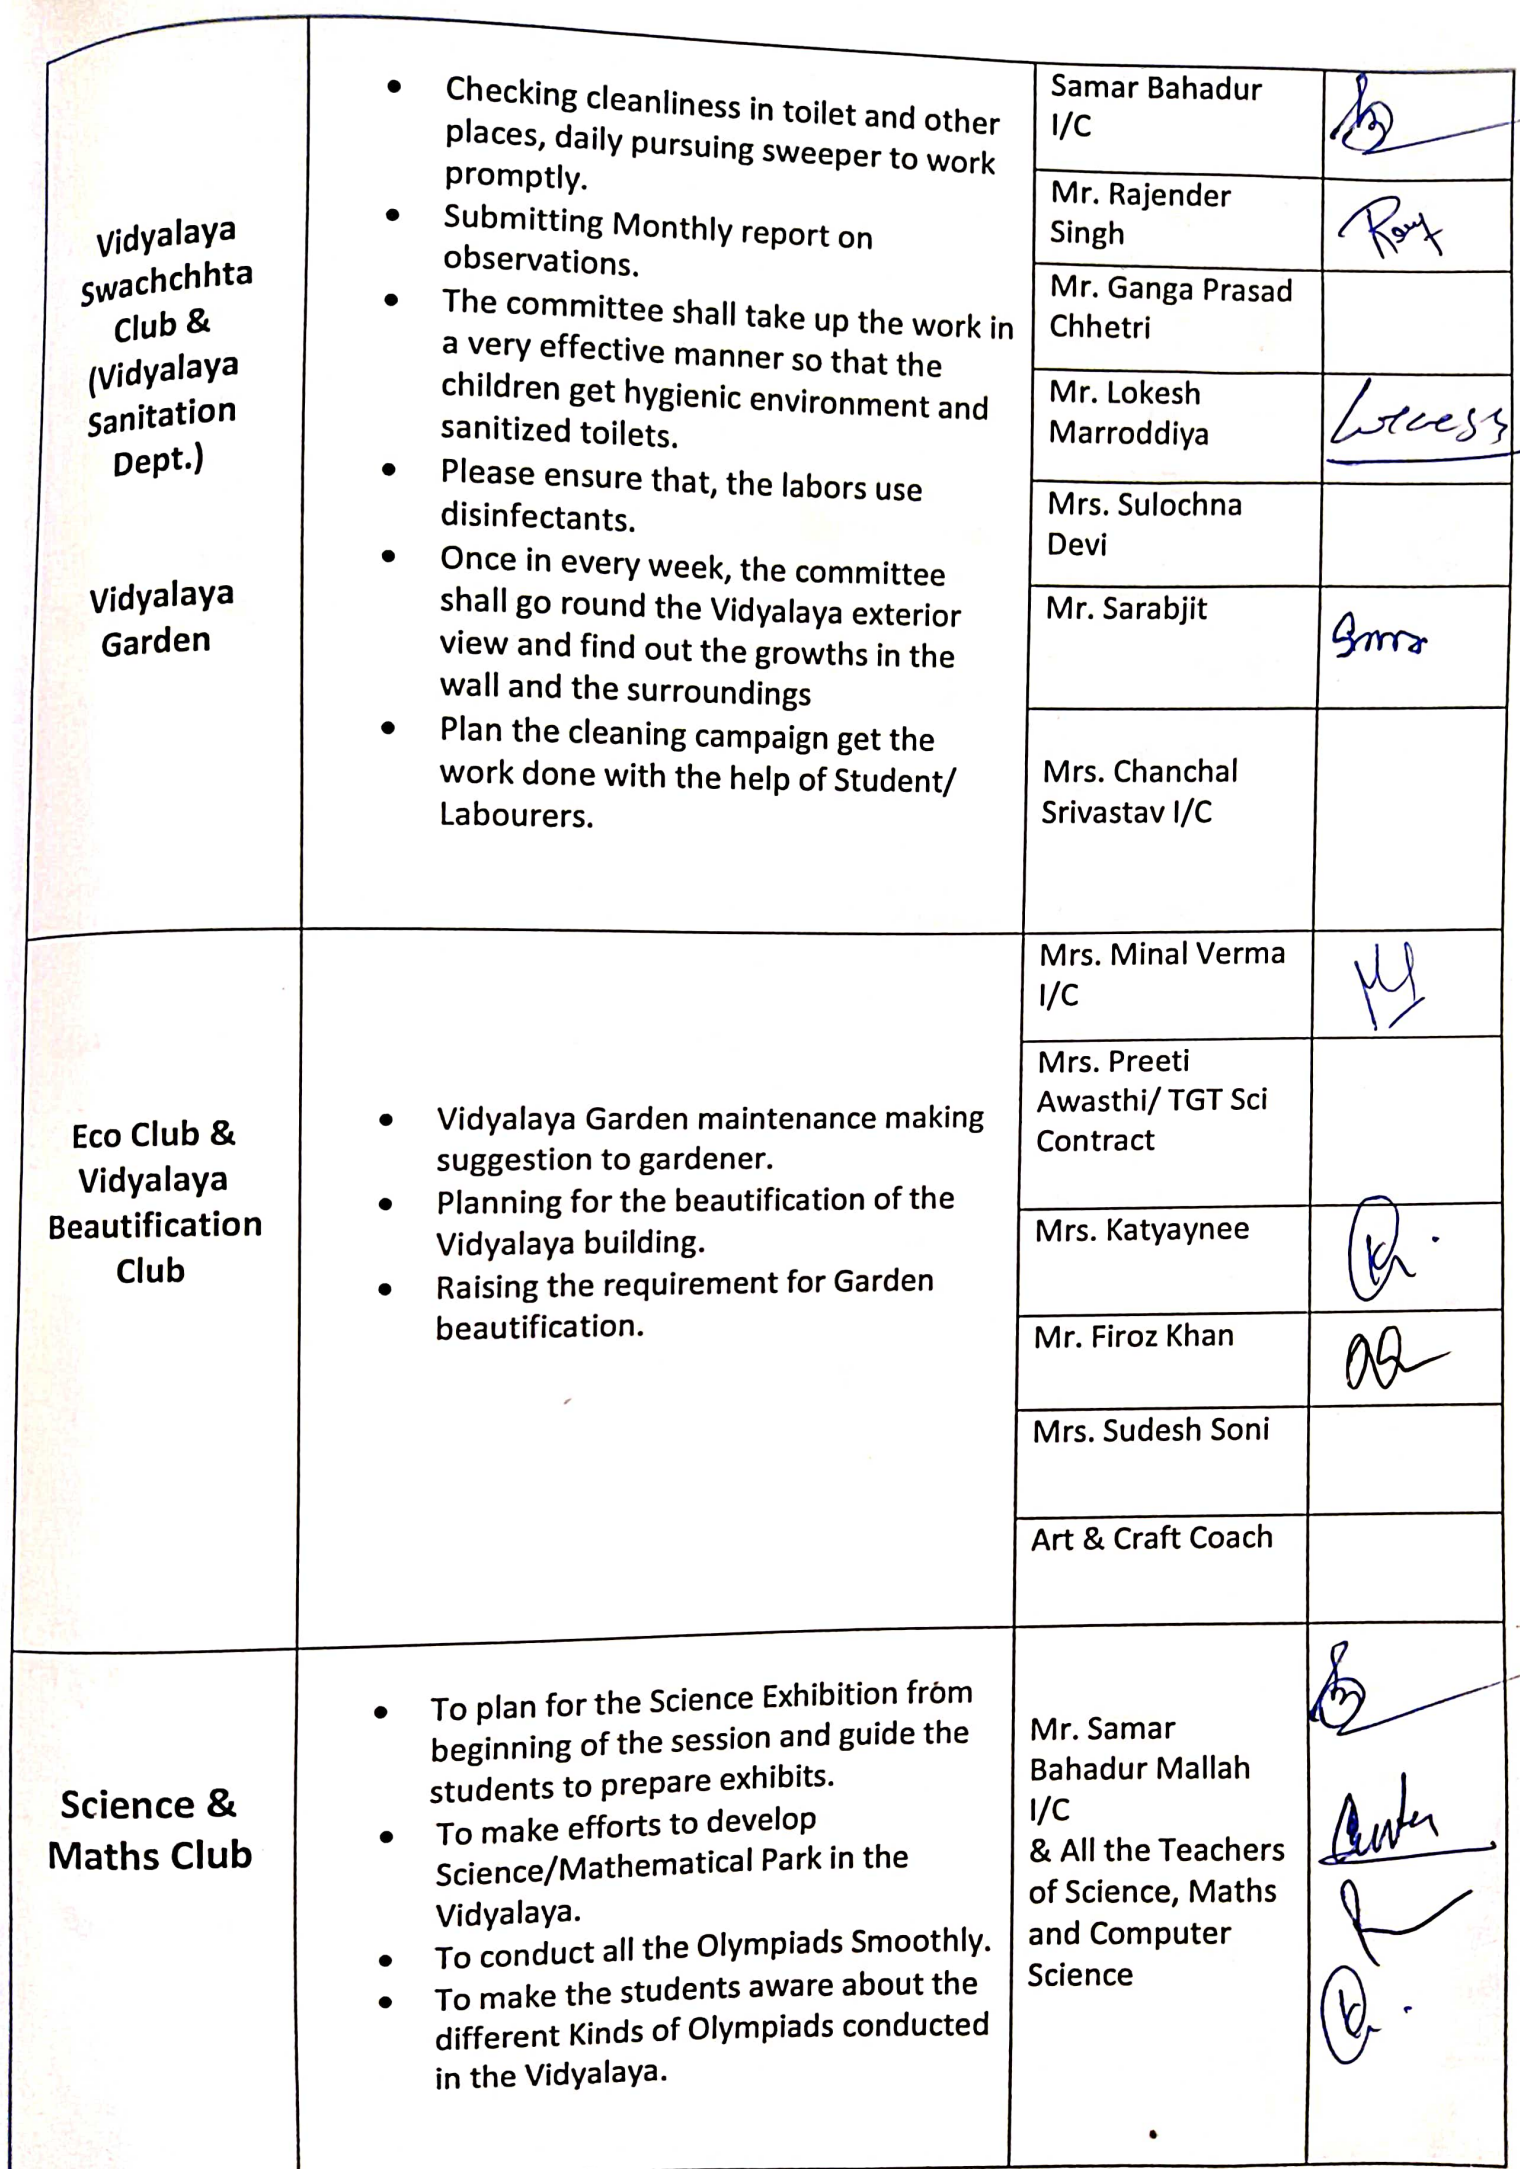 Vidyalaya
Swachchhta
Club &
(Vidyalaya
Sanitation
Dept.)
Vidyalaya
Garden
• Checking cleanliness in toilet and other
places, daily pursuing sweeper to work
promptly.
• Submitting Monthly report on
observations.
• The committee shall take up the work in
a very effective manner so that the
children get hygienic environment and
sanitized toilets.
• Please ensure that, the labors use
disinfectants.
• Once in every week, the committee
shall go round the Vidyalaya exterior
view and find out the growths in the
wall and the surroundings
• Plan the cleaning campaign get the
work done with the help of Student/
Labourers.
Samar Bahadur
I/C
Mr. Rajender
Singh
Mr. Ganga Prasad
Chhetri
Mr. Lokesh
Marroddiya
Mrs. Sulochna
Devi
Mr. Sarabjit
Mrs. Chanchal
Srivastav I/C
Eco Club &
Vidyalaya
Beautification
Club
• Vidyalaya Garden maintenance making
suggestion to gardener.
• Planning for the beautification of the
Vidyalaya building.
• Raising the requirement for Garden
beautification.
Mrs. Minal Verma
I/C
Mrs. Preeti
Awasthi/ TGT Sci
Contract
Mrs. Katyaynee
Mr. Firoz Khan
Mrs. Sudesh Soni
Art & Craft Coach
Science &
Maths Club
• To plan for the Science Exhibition from
beginning of the session and guide the
students to prepare exhibits.
• To make efforts to develop
Science/Mathematical Park in the
Vidyalaya.
• To conduct all the Olympiads Smoothly.
• To make the students aware about the
different Kinds of Olympiads conducted
in the Vidyalaya.
Mr. Samar
Bahadur Mallah
I/C
& All the Teachers
of Science, Maths
and Computer
Science